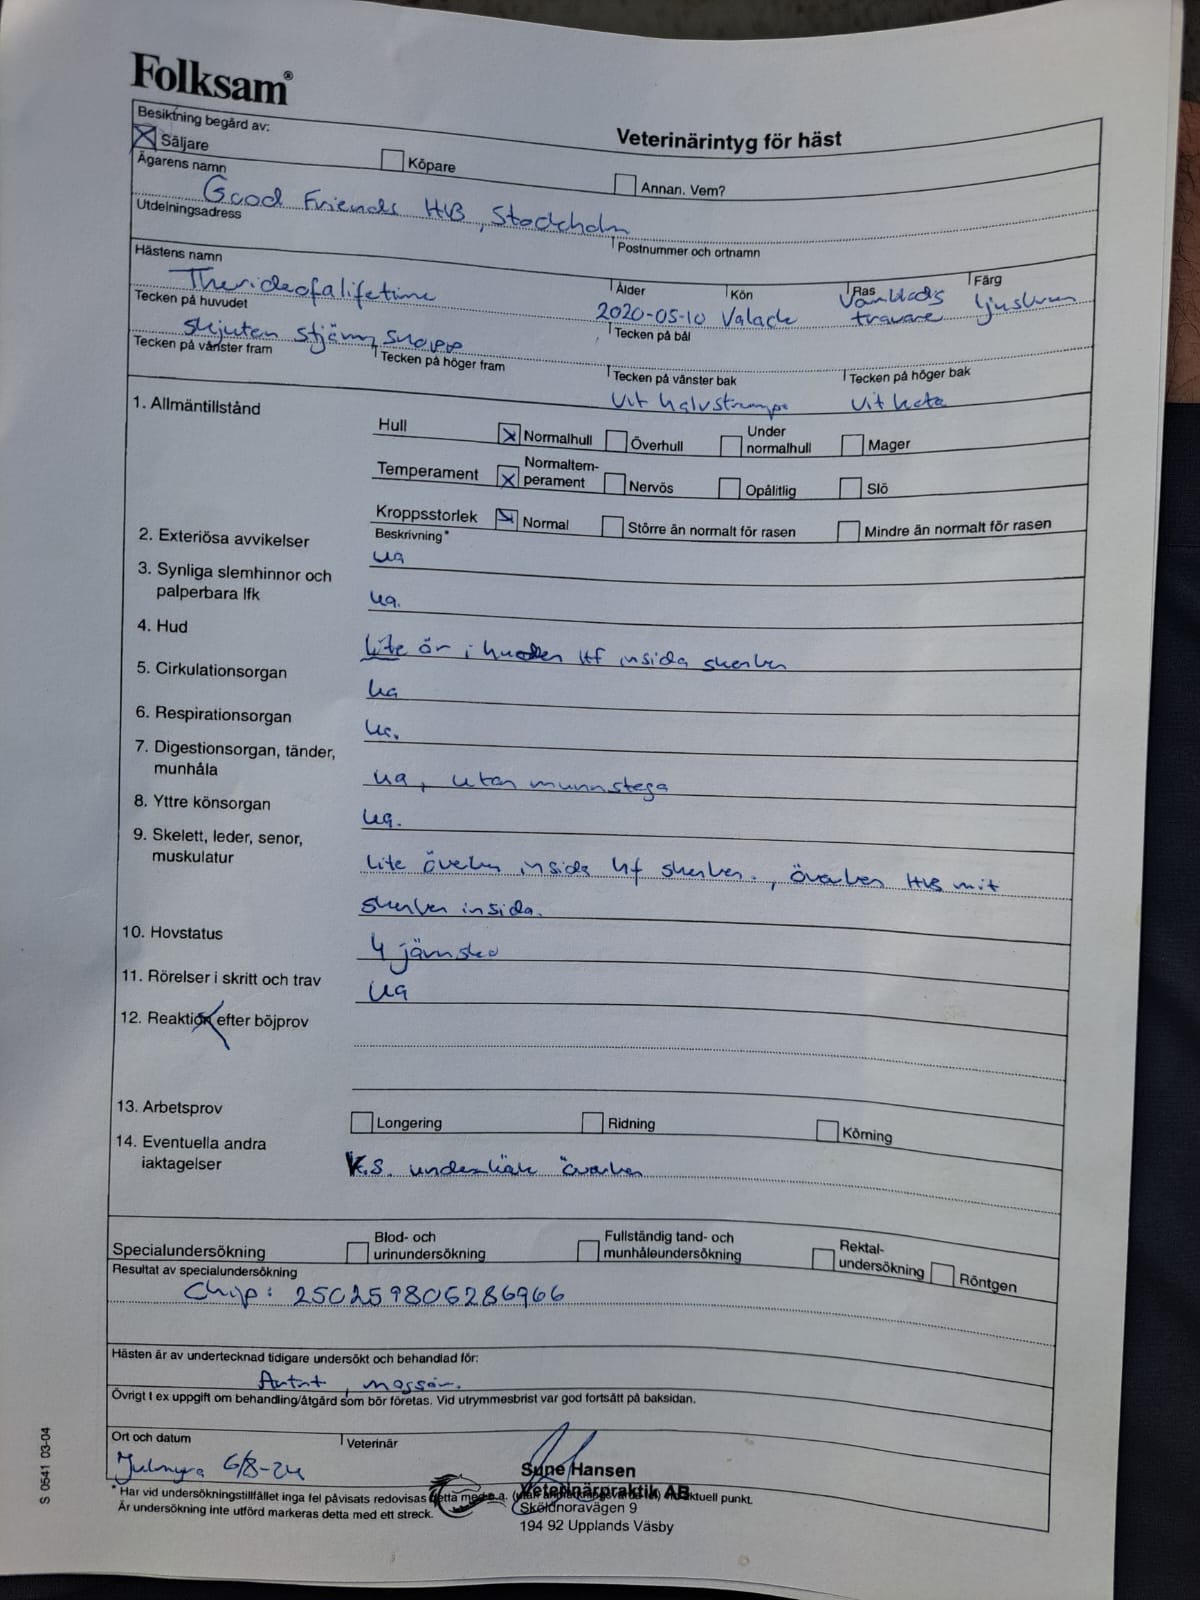 Folksam®
Besiktning begärd av:
Veterinärintyg för häst
Säljare
Köpare
Annan. Vem?
Ägarens namn
Good Friends HB, Stockholm
Utdelningsadress
Postnummer och ortnamn
Hästens namn
Ålder
Kön
Ras
Färg
Therideofalifetime
2020-05-10 Valack
Varmblods travare
ljusbrun
Tecken på huvudet
Tecken på bål
Skjuten stjärn, snopp
Tecken på vänster fram
Tecken på höger fram
Tecken på vänster bak
Tecken på höger bak
vit halvstrumpa
vit kota
1. Allmäntillstånd
Hull
Normalhull
Överhull
Under normalhull
Mager
Temperament
Normaltem-perament
Nervös
Opålitlig
Slö
Kroppsstorlek
Normal
Större än normalt för rasen
Mindre än normalt för rasen
2. Exteriösa avvikelser
Beskrivning*
ua
3. Synliga slemhinnor och
palperbara lfk
ua.
4. Hud
Lite ärr i huden Hf insida skenben
5. Cirkulationsorgan
ua
6. Respirationsorgan
ua.
7. Digestionsorgan, tänder,
munhåla
ua, utan munnstega
8. Yttre könsorgan
ua.
9. Skelett, leder, senor,
muskulatur
lite överben insida Hf skenben., överben HB mitt
skenben insida.
10. Hovstatus
4 järnsko
11. Rörelser i skritt och trav
ua
12. Reaktion efter böjprov
13. Arbetsprov
Longering
Ridning
Körning
14. Eventuella andra
iaktagelser
V.S. underkäk överben
Specialundersökning
Blod- och
urinundersökning
Fullständig tand- och
munhåleundersökning
Rektal-
undersökning
Röntgen
Resultat av specialundersökning
Chip: 250259806286966
Hästen är av undertecknad tidigare undersökt och behandlad för:
Artrit,
Övrigt t ex uppgift om behandling/åtgärd som bör företas. Vid utrymmesbrist var god fortsätt på baksidan.
Ort och datum
Veterinär
6/8-24
Sune Hansen
Veterinärpraktik AB
Sköldnoravägen 9
194 92 Upplands Väsby
* Har vid undersökningstillfället inga fel påvisats redovisas detta med u.a. (utan anmärkningsvärda fel) vid aktuell punkt.
Är undersökning inte utförd markeras detta med ett streck.
S 0541 03-04